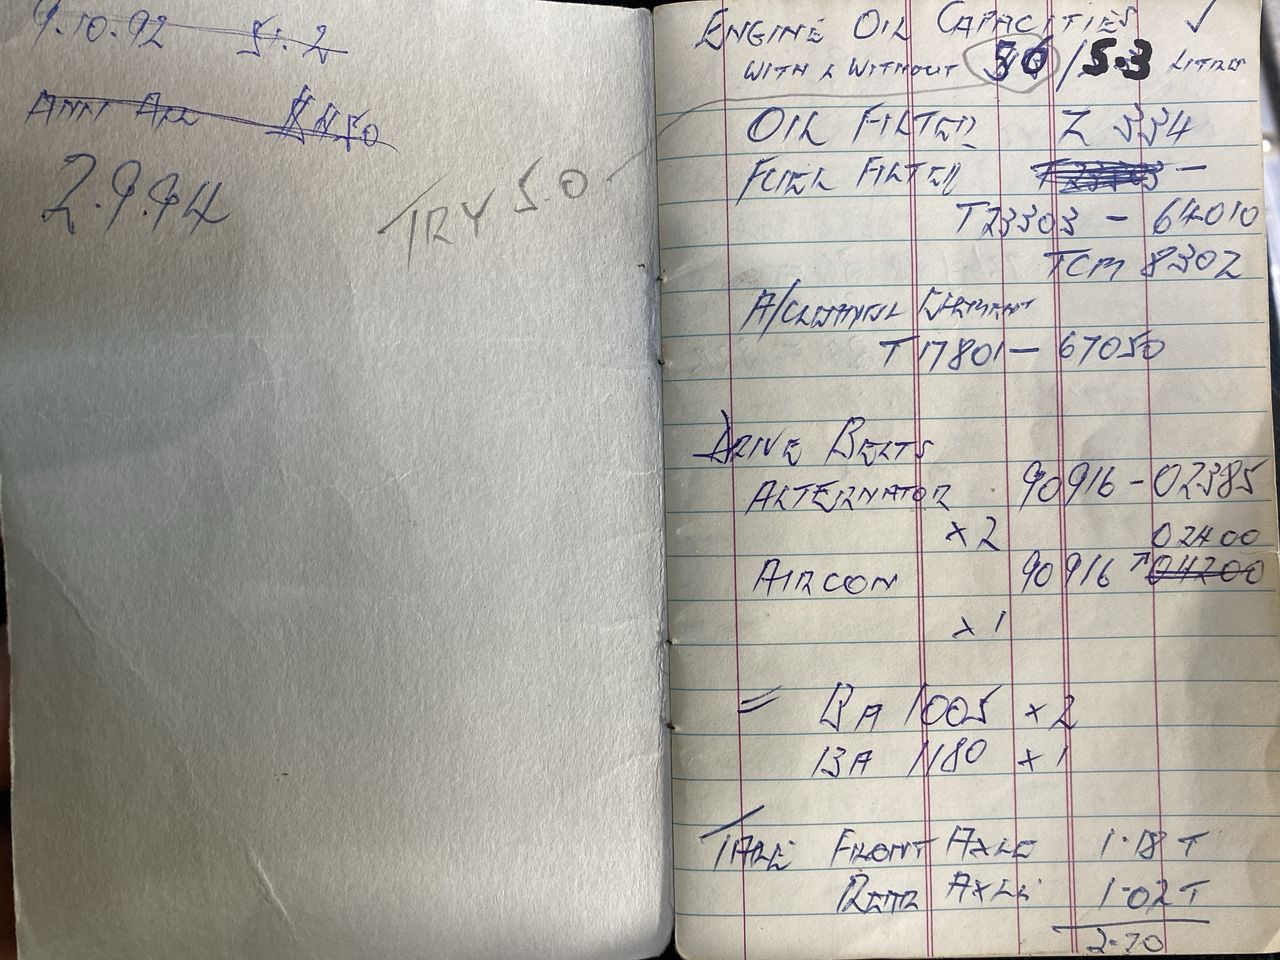 9.10.92 51.2
2.9.94
TRY 5.0
ENGINE OIL CAPACITIES ✓
WITH & WITHOUT 5.6 / 5.3 LITRES
OIL FILTER Z 334
FUEL FILTER —
T23303 - 64010
TCM 8302
A/CLEANER ELEMENT
T17801 - 67050
DRIVE BELTS
ALTERNATOR 90916 - 02385
x 2 02400
AIRCON 90916 - 04200
x 1
= BA 1005 x 2
BA 1180 x 1
TARE FRONT AXLE 1.18 T
REAR AXLE 1.02 T
2.20